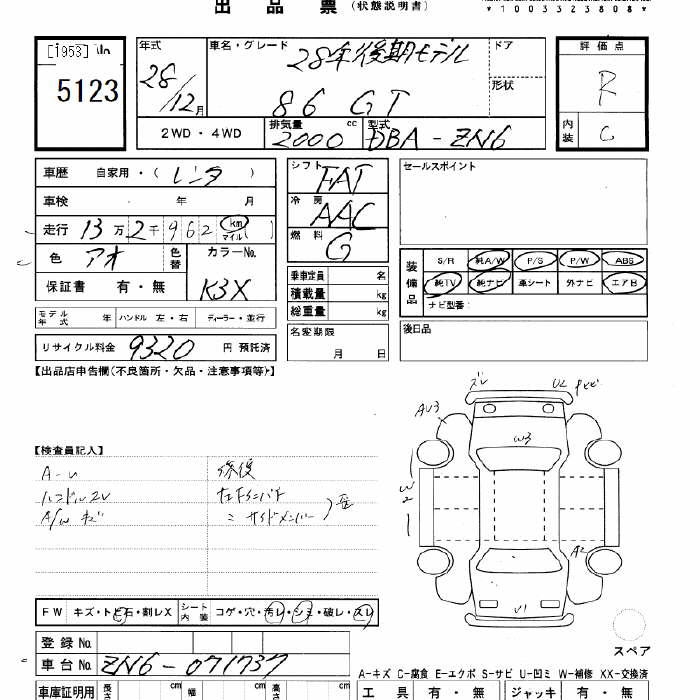 出品票 (状態説明書)
*1003323808*
[1953]
5123
年式 28/12月
車名・グレード 28年後期モデル
86 GT
ドア
形状
評価点 R
内装 C
2WD・4WD
排気量 2000 cc
型式 DBA-ZN6
車歴 自家用・(レンタ)
車検 ・ 年 月
走行 13万2千962 km マイル ( )
色 アオ 色替
カラーNo. K3X
保証書 有・無
シフト FAT
冷房 AAC
燃料 G
セールスポイント
装備品 S/R 純A/W P/S P/W ABS
純TV 純ナビ 革シート 外ナビ エアB
ナビ型番:
乗車定員 名
積載量 kg
総重量 kg
モデル年式 年 ハンドル 左・右 ディーラー・並行
名変期限 月 日
後日品
リサイクル料金 9320 円 預託済
【出品店申告欄(不良箇所・欠品・注意事項等)】
ズレ U2
AU3
W3
W2
A2
V1
【検査員記入】
A-U 修復
ハンドルスレ
A/W キズ サイドメンバー
FW キズ・トビ石・割レX シート内装 コゲ・穴・汚レ・シミ・破レ・スレ
スペア
登録No.
車台No. ZN6-071737
A-キズ C-腐食 E-エクボ S-サビ U-凹ミ W-補修 XX-交換済
車庫証明用 長さ cm 幅 cm 高さ cm
工具 有・無 ジャッキ 有・無